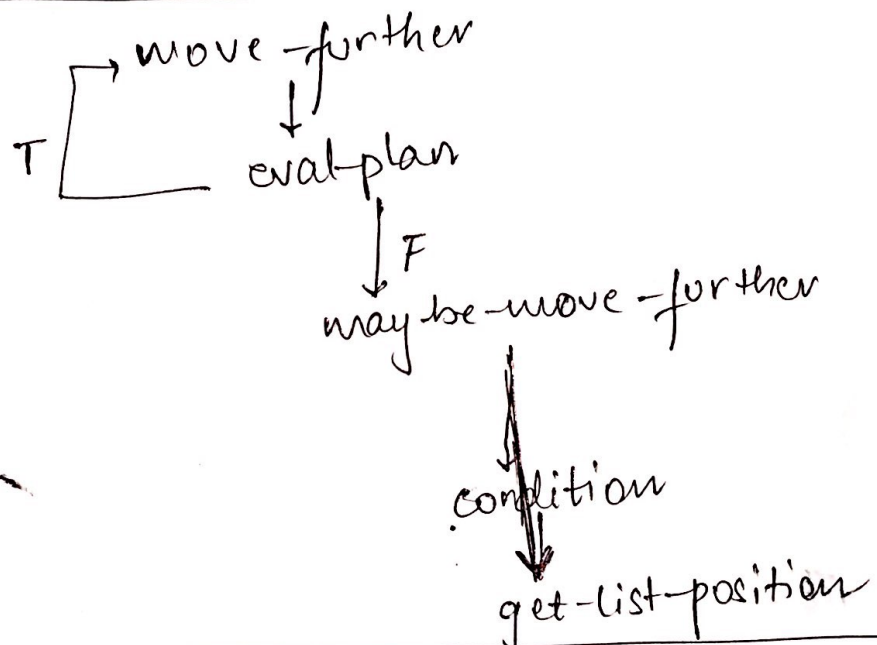 move-further
T
eval-plan
F
maybe-move-further
condition
get-list-position